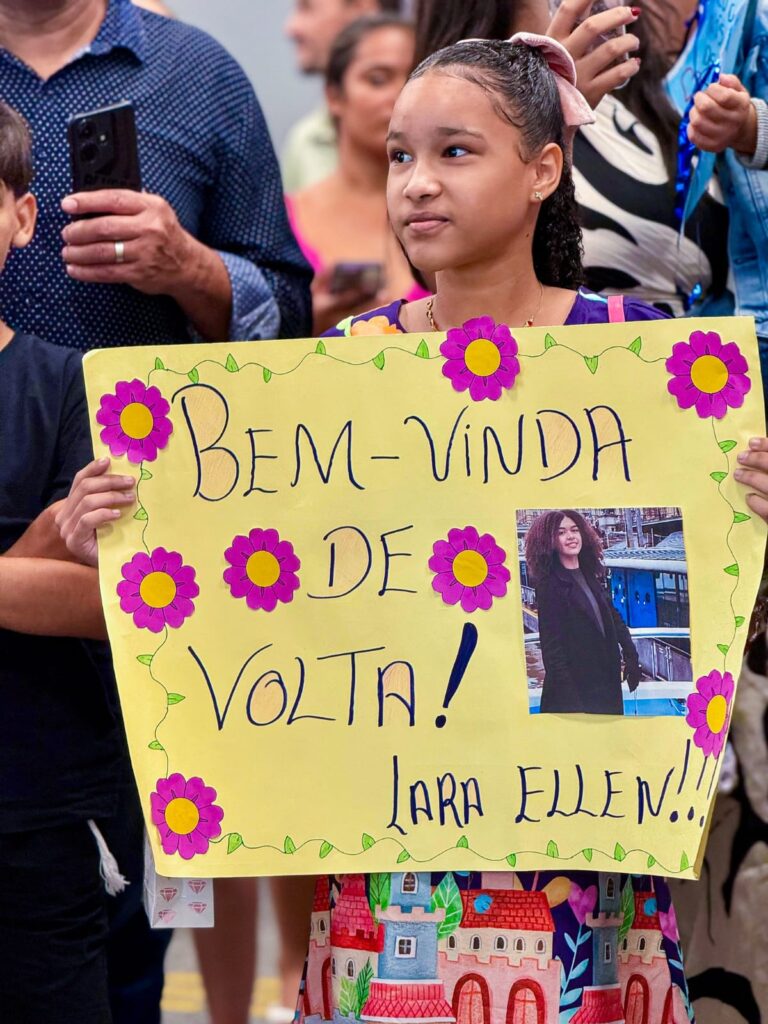 BEM-VINDA
DE
VOLTA!
LARA ELLEN!!!